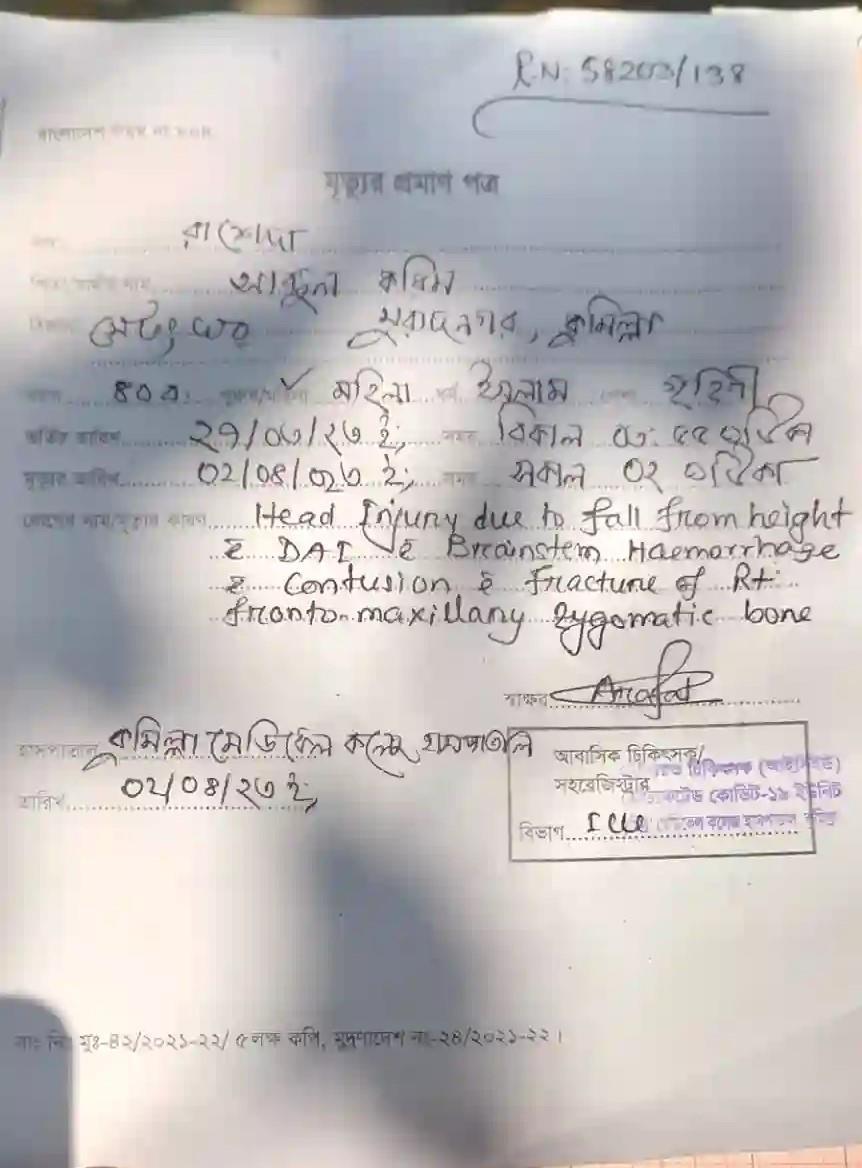 R.N: 58203/138
বাংলাদেশ ফরম নং ৮০৪
মৃত্যুর প্রমাণ পত্র
রাশেদা
পিতা/স্বামীর নাম আব্দুল করিম
মুরাদনগর, কুমিল্লা
মহিলা ধর্ম ইসলাম গৃহিনী
ভর্তির তারিখ ২৭/০৩/২৩ ইং, সময় বিকাল
মৃত্যুর তারিখ ০২/০৪/২৩ ইং, সময় সকাল
রোগের নাম/মৃত্যুর কারণ Head Injury due to fall from height
c̄ DAI c̄ Brainstem Haemorrhage
c̄ Contusion c̄ fracture of Rt.
fronto-maxillary zygomatic bone
স্বাক্ষর Arafat
হাসপাতাল কুমিল্লা মেডিকেল কলেজ হাসপাতাল
তারিখ ০২/০৪/২৩ ইং,
আবাসিক চিকিৎসক/
সহরেজিস্ট্রার
কোভিট-১৯ ইউনিট
বিভাগ ICU
বাঃ নিঃ মুঃ-৪২/২০২১-২২/ ৫ লক্ষ কপি, মুদ্রণাদেশ নং-২৪/২০২১-২২।